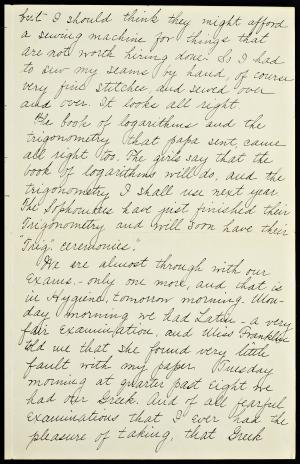 but I should think they might afford
a sewing machine for things that
are not worth hiring done. So I had
to sew my seams by hand, of course
very fine stitches, and sewed over
and over. It looks all right.
The book of logarithms and the
trigonometry that papa sent, came
all right too. The girls say that the
book of logarithms will do, and the
trigonometry I shall use next year
The Sophomores have just finished their
Trigonometry and will soon have their
"Trig". ceremonies."
We are almost through with our
Exams. - only one more, and that is
in Hygiene, tomorrow morning. Mon-
day morning we had Latin - a very
fair examination, and Miss Franklin
told me that she found very little
fault with my paper. Tuesday
morning at quarter past eight we
had our Greek. And of all fearful
examinations that I ever had the
pleasure of taking, that Greek